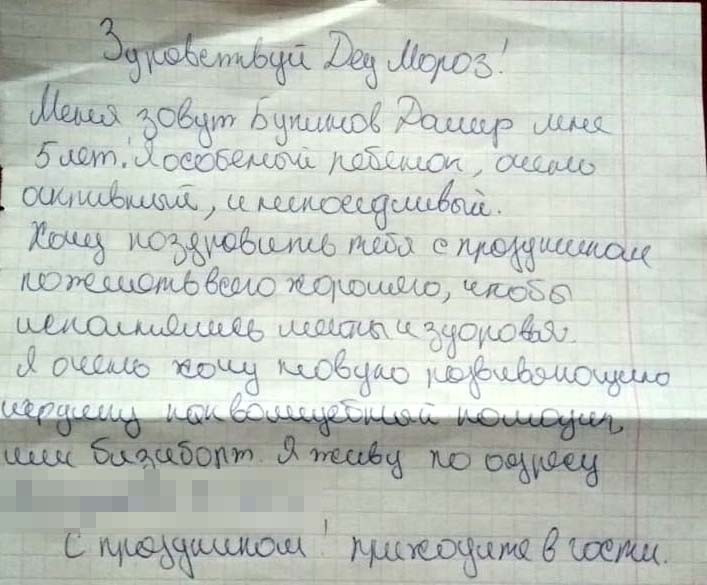 Здравствуй Дед Мороз!
Меня зовут Дамир мне
5 лет. Я особеный ребёнок, очень
активный, и непоседливый.
Хочу поздравить тебя с праздником
пожелать всего хорошего, чтобы
исполнялись мечты и здоровья.
Я очень хочу новую развивающую
игрушку как волшебный комодик
или бизиборт. Я живу по адресу
С праздником! приходите в гости.